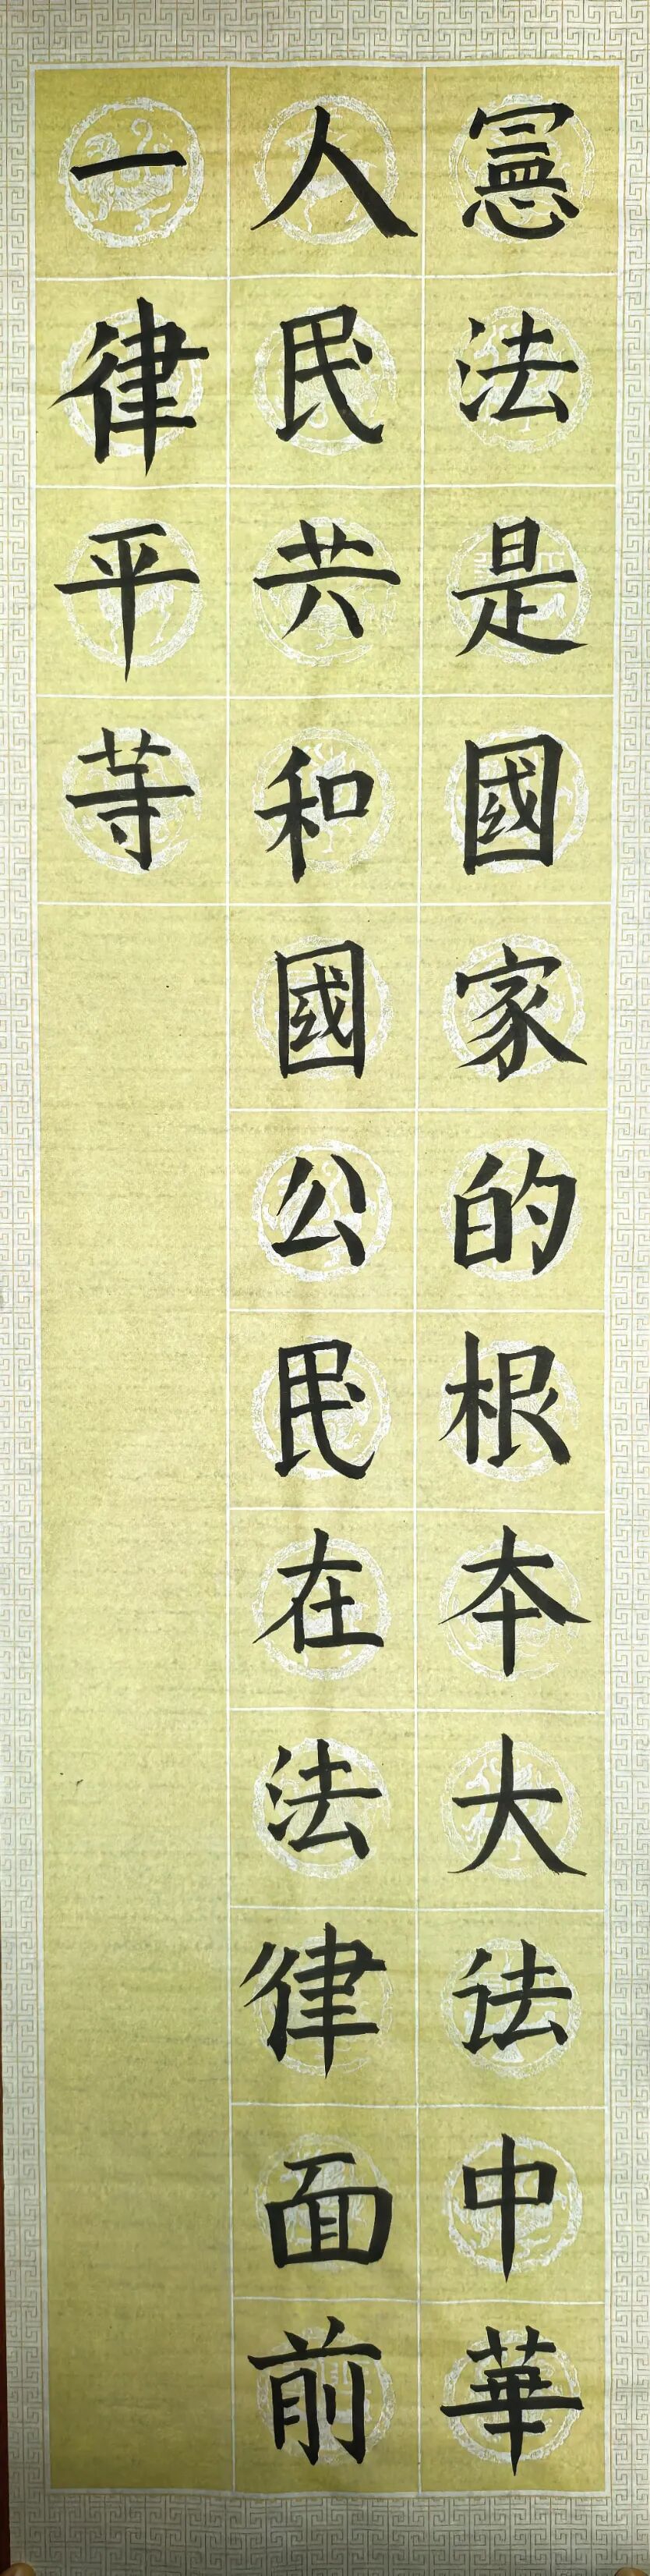 憲法是國家的根本大法中華
人民共和國公民在法律面前
一律平等